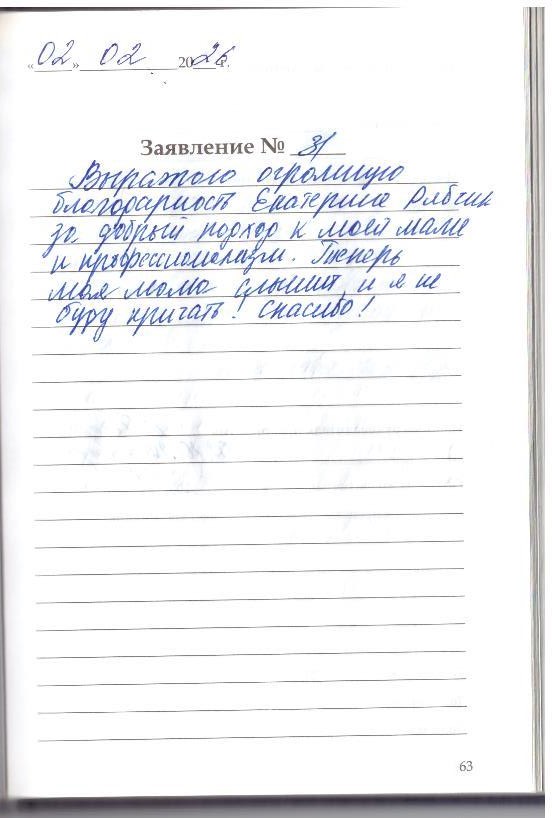 «02» 02 2026 г.
Заявление № 31
Выражаю огромную
благодарность Екатерине Рябчик
за добрый подход к моей маме
и профессионализм. Теперь
моя мама слышит, и я не
буду кричать! Спасибо!
63